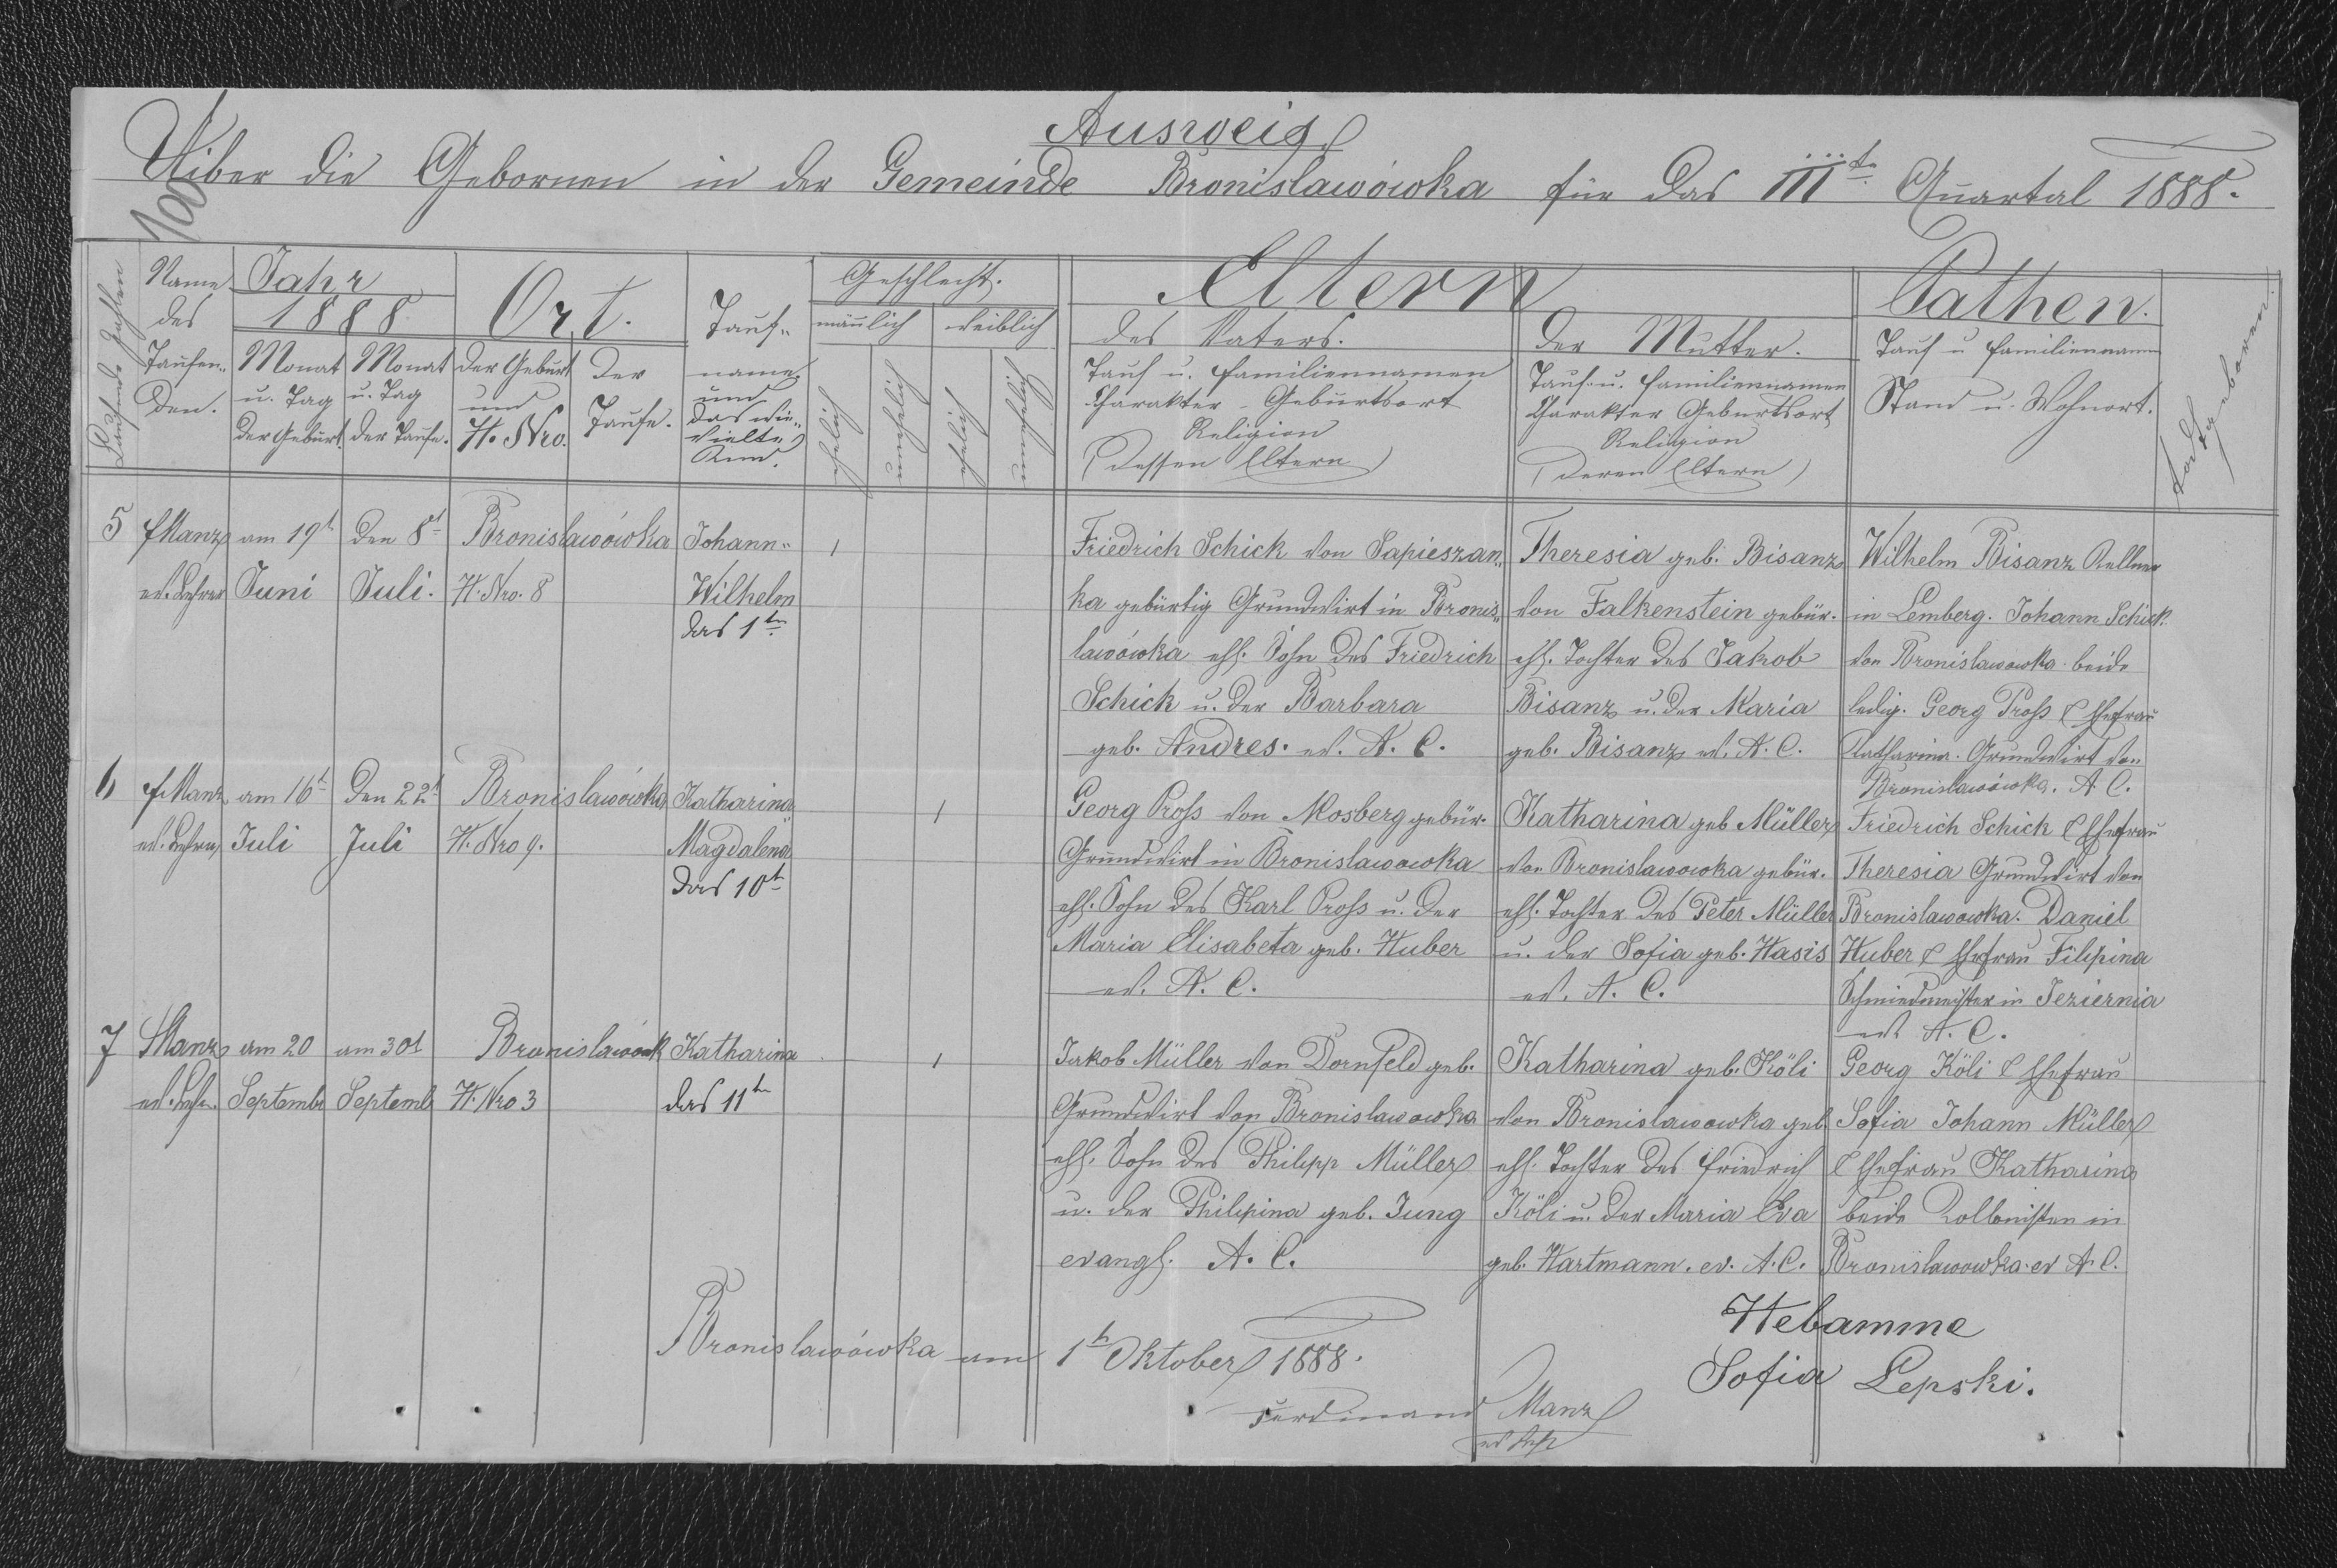 Ausweis
Uiber die Gebornen in der Gemeinde Bronislawówka für das IIIt. Quartal 1888.
100
Laufende Zahlen
Name des Taufen„den.
Jahr
1888
Monat u. Tag der Geburt.
Monat u. Tag der Taufe.
Ort.
der Geburt und H. Nro.
der Taufe.
Tauf„name und das wie„vielte Kind.
Geschlecht.
mänlich
weiblich
ehelich
unehelich
ehelich
unehelich
Eltern
des Vaters.
Tauf u. Familiennamen
Charakter Geburtsort
Religion
(dessen Eltern)
der Mutter.
Tauf u. Familiennamen
Charakter Geburtsort
Religion
(deren Eltern)
Pathen.
Tauf u Familiennamen
Stand u. Wohnort.
Todtgeboren.
5
F Manz
ev. Lehrer
am 19t
Juni
den 8t
Juli.
Bronislawówka
H. Nro. 8
Johann„
Wilhelm
das 1te
1
Friedrich Schick von Sapieszan„
ka gebürtig Grundwirt in Bronis„
lawówka ehl. Sohn des Friedrich
Schick u. der Barbara
geb. Andres. ev. A. C.
Theresia geb. Bisanz
von Falkenstein gebür.
ehl. Tochter des Jakob
Bisanz u. der Maria
geb. Bisanz ev. A. C.
Wilhelm Bisanz Kellner
in Lemberg. Johann Schick.
von Bronislawowka beide
ledig. Georg Pross & Ehefrau
Katharina. Grundwirt von
Bronislawówka. A. C.
6
F. Manz
ev. Lehrer
am 16t
Juli
den 22t
Juli
Bronislawówka
H. Nro 9.
Katharina
Magdalena
das 10t
1
Georg Pross von Mosberg gebür.
Grundwirt in Bronislawowka
ehl. Sohn des Karl Pross u. der
Maria Elisabeta geb. Huber
ev. A. C.
Katharina geb Müller
von Bronislawowka gebür.
ehl. Tochter des Peter Müller
u. der Sofia geb. Hasis
ev. A. C.
Friedrich Schick & Ehefrau
Theresia Grundwirt von
Bronislawowka. Daniel
Huber & Ehefrau Filipina
Schmiedmeister in Jeziernia
ev A. C.
7
F Manz
ev. Lehr.
am 20
Septembr
am 30t
Septemb
Bronislawówk
H. Nro 3
Katharina
das 11te
1
Jakob Müller von Dornfeld geb.
Grundwirt von Bronislawowka
ehl. Sohn des Philipp Müller
u. der Philipina geb. Jung
evangl. A. C.
Katharina geb. Köli
von Bronislawowka geb
ehl. Tochter des Friedrich
Köli u. der Maria Eva
geb. Hartmann. ev. A. C.
Georg Köli & Ehefrau
Sofia Johann Müller
& Ehefrau Katharina
beide Kollonisten in
Bronislawowka. ev A. C.
Bronislawówka am 1t Oktober 1888.
Hebamme
Sofia Lepski.
Ferdinand Manz